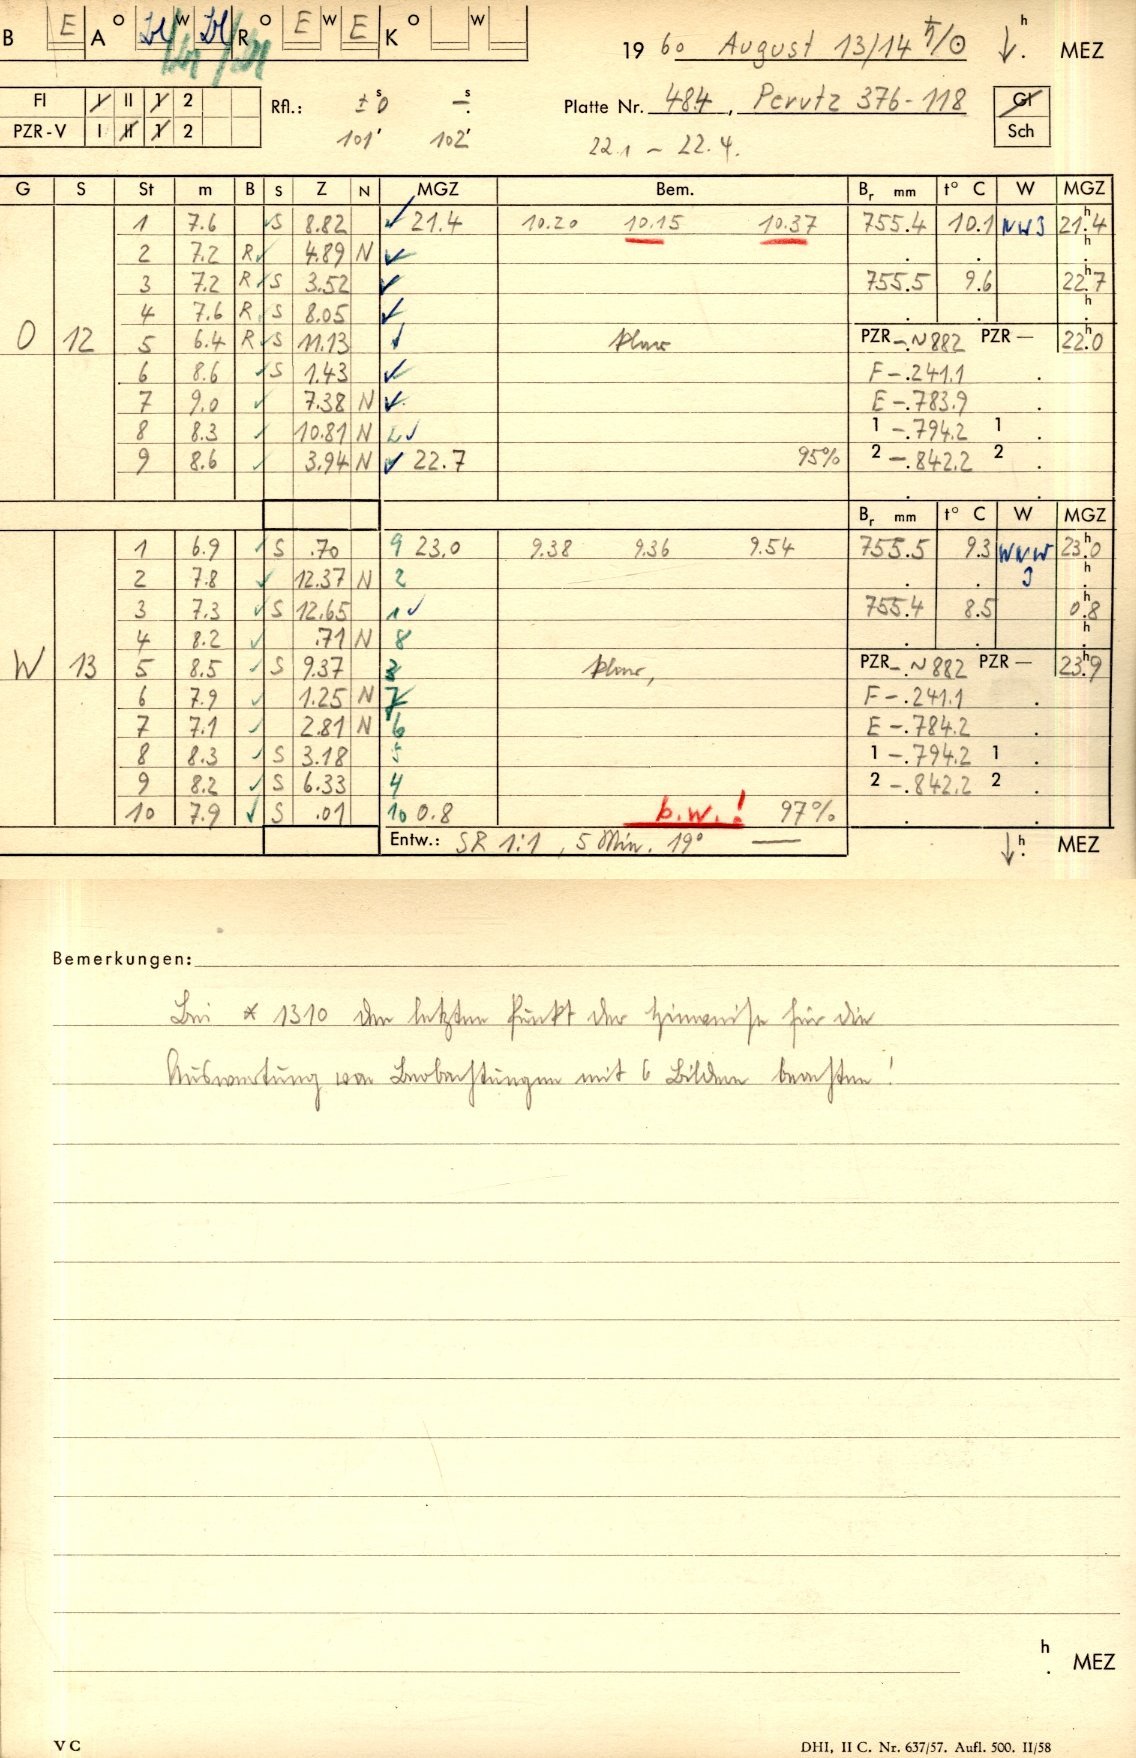 B E A O W R O E W E K O W
19 60 August 13/14 ♄/☉ h MEZ
FI I II 1 2
PZR-V I II 1 2
Rfl.: ± s 0 – s
101' 102'
Platte Nr. 484, Perutz 376-118
22.1 – 22.4.
Gl
Sch
G S St m B S Z N MGZ Bem. Br mm t° C W MGZ
1 7.6 S 8.82 21.4 10.20 10.15 10.37 755.4 10.1 NW3 21.4 h
2 7.2 R 4.89 N
3 7.2 R S 3.52 755.5 9.6 22.7 h
4 7.6 R S 8.05
O 12 5 6.4 R S 11.13 klar PZR – N882 PZR – 22.0 h
6 8.6 S 1.43 F – .241.1
7 9.0 7.38 N E – .783.9
8 8.3 10.81 N 1 – .794.2 1
9 8.6 3.94 N 22.7 95% 2 – .842.2 2
Br mm t° C W MGZ
1 6.9 S .70 9 23.0 9.38 9.36 9.54 755.5 9.3 WNW 3 23.0 h
2 7.8 12.37 N 2
3 7.3 S 12.65 1 755.4 8.5 0.8 h
4 8.2 .71 N 8
W 13 5 8.5 S 9.37 3 klar, PZR – N882 PZR – 23.9 h
6 7.9 1.25 N 7 F – .241.1
7 7.1 2.81 N 6 E – .784.2
8 8.3 S 3.18 5 1 – .794.2 1
9 8.2 S 6.33 4 2 – .842.2 2
10 7.9 S .01 10 0.8 b.w.! 97%
Entw.: SR 1:1, 5 Min. 19° — h MEZ
Bemerkungen:
Bei * 1310 den letzten Punkt der Hinweise für die
Auswertung von Beobachtungen mit 6 Bildern beachten!
h MEZ
V C
DHI, II C. Nr. 637/57. Aufl. 500. II/58